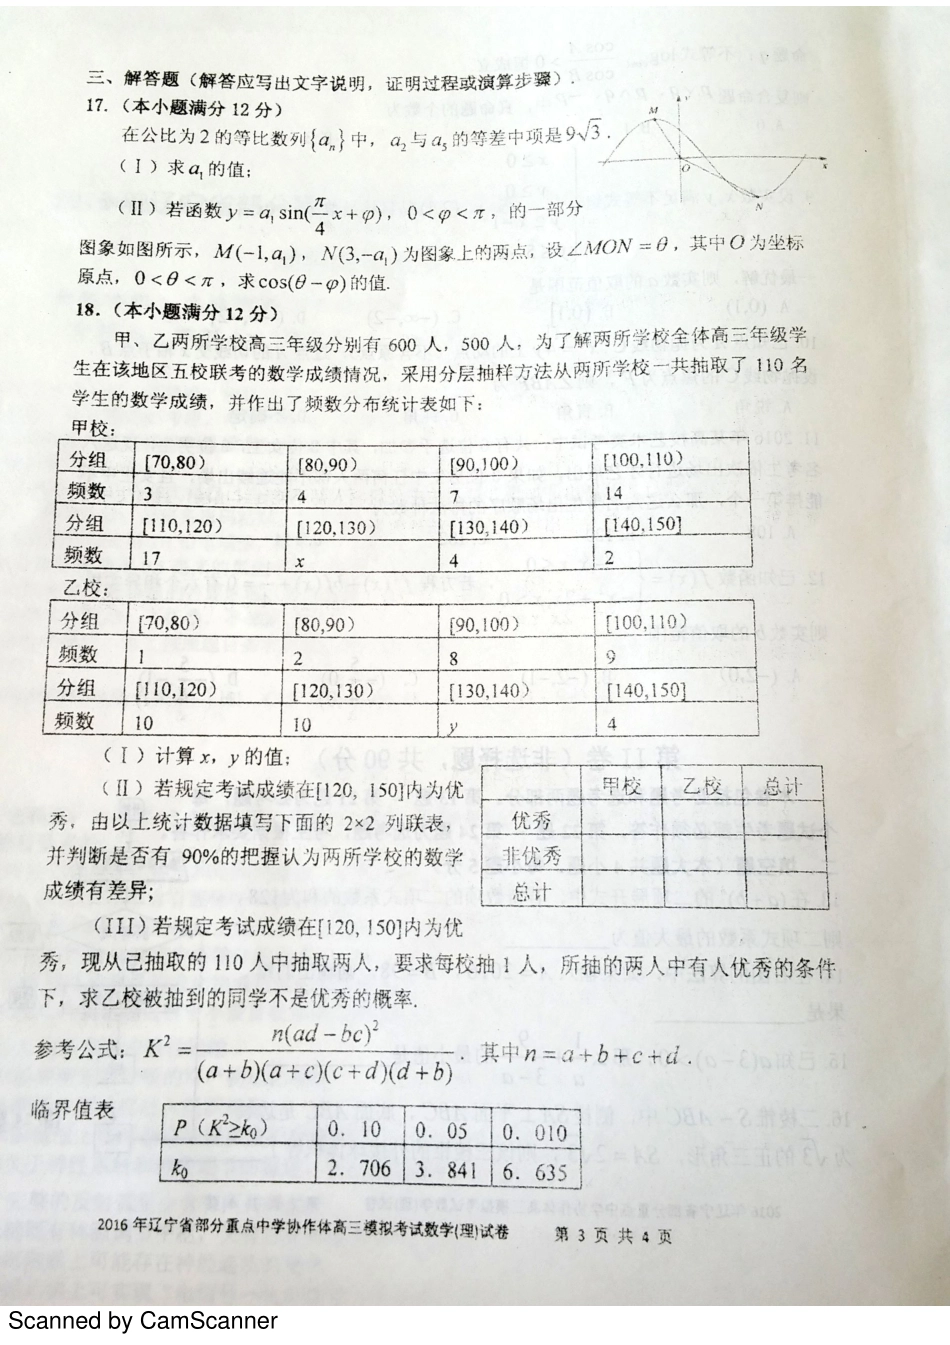 三、解答题（解答应写出文字说明，证明过程或演算步骤）.
17.（本小题满分 12 分）
在公比为 2 的等比数列{aₙ}中，a₂与a₅的等差中项是9√3.
（Ⅰ）求a₁的值；
（Ⅱ）若函数 y = a₁ sin(π/4 x + φ)，0 < φ < π，的一部分
图象如图所示，M(−1, a₁)，N(3, −a₁)为图象上的两点，设∠MON = θ，其中O为坐标
原点，0 < θ < π，求cos(θ − φ)的值.
M
y
O
x
N
18.（本小题满分 12 分）
甲、乙两所学校高三年级分别有 600 人，500 人，为了解两所学校全体高三年级学
生在该地区五校联考的数学成绩情况，采用分层抽样方法从两所学校一共抽取了 110 名
学生的数学成绩，并作出了频数分布统计表如下：
甲校：
分组 [70,80） [80,90） [90,100） [100,110）
频数 3 4 7 14
分组 [110,120） [120,130） [130,140） [140,150]
频数 17 x 4 2
乙校：
分组 [70,80） [80,90） [90,100） [100,110）
频数 1 2 8 9
分组 [110,120） [120,130） [130,140） [140,150]
频数 10 10 y 4
（Ⅰ）计算 x，y 的值；
（Ⅱ）若规定考试成绩在[120, 150]内为优
秀，由以上统计数据填写下面的 2×2 列联表，
并判断是否有 90%的把握认为两所学校的数学
成绩有差异；
甲校 乙校 总计
优秀
非优秀
总计
（III）若规定考试成绩在[120, 150]内为优
秀，现从已抽取的 110 人中抽取两人，要求每校抽 1 人，所抽的两人中有人优秀的条件
下，求乙校被抽到的同学不是优秀的概率.
参考公式：K² = n(ad − bc)² / (a+b)(a+c)(c+d)(d+b) 其中 n = a + b + c + d .
临界值表
P（K²≥k₀） 0. 10 0. 05 0. 010
k₀ 2. 706 3. 841 6. 635
2016 年辽宁省部分重点中学协作体高三模拟考试数学(理)试卷 第 3 页 共 4 页
Scanned by CamScanner